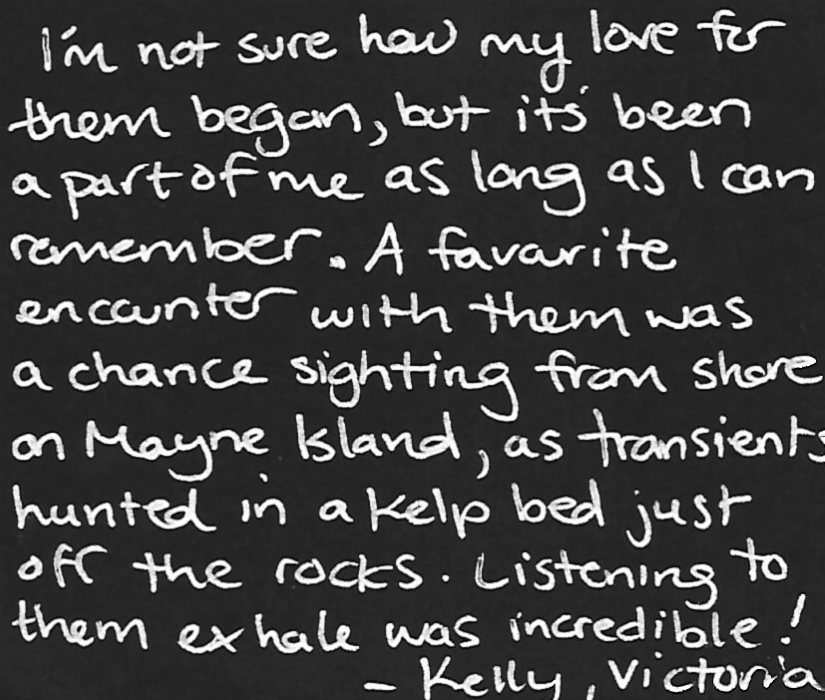 I'm not sure how my love for
them began, but it's been
a part of me as long as I can
remember. A favorite
encounter with them was
a chance sighting from shore
on Mayne Island, as transients
hunted in a kelp bed just
off the rocks. Listening to
them exhale was incredible!
- Kelly, Victoria